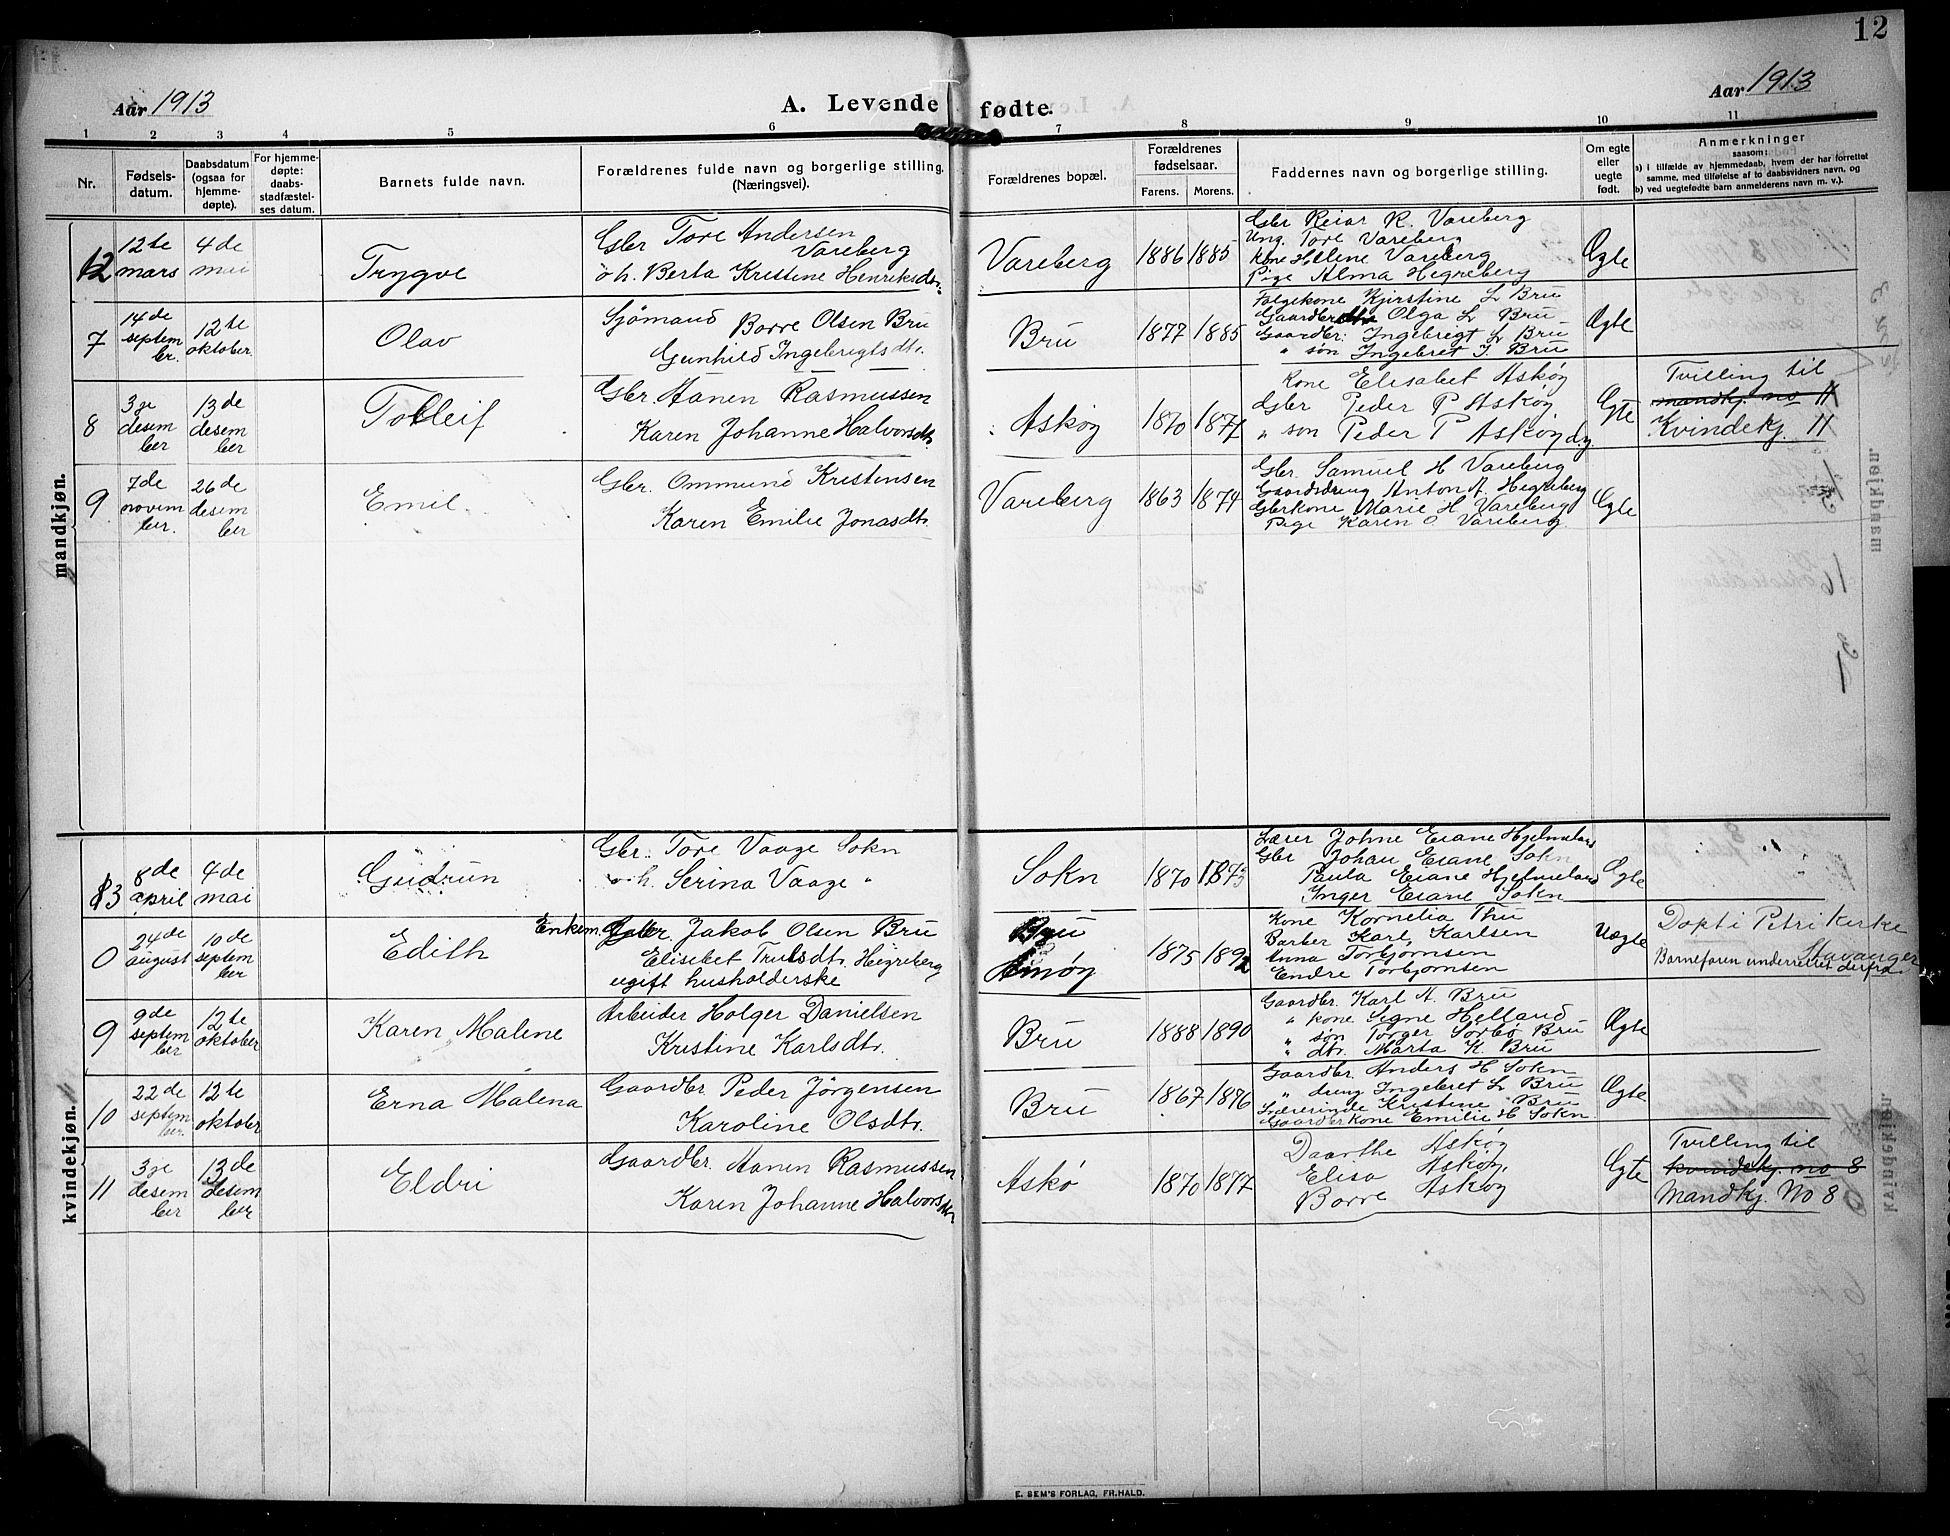 12
Aar 1913
A. Levende fødte.
Aar 1913
1 2 3 4 5 6 7 8 9 10 11
Nr.
Fødsels-
datum.
Daabsdatum
(ogsaa for
hjemme-
døpte).
For hjemme-
døpte:
daabs-
stadfæstel-
ses datum.
Barnets fulde navn.
Forældrenes fulde navn og borgerlige stilling.
(Næringsvei).
Forældrenes bopæl.
Forældrenes
fødselsaar.
Farens. Morens.
Faddernes navn og borgerlige stilling.
Om egte
eller
uegte
født.
Anmerkninger
saasom:
a) i tilfælde av hjemmedaab, hvem der har forrettet
samme, med tilføielse af to daabsvidners navn, og
b) ved uegtefødte barn anmelderens navn m. v.).
mandkjøn.
12
12te
mars
4de
mai
Trygve
Gbr Tore Andersen
Vareberg
o h. Berta Kristine Henriksdtr.
Vareberg
1886 1885
Gbr Reiar R. Vareberg
Ung. Tore Vareberg
Kone Helene Vareberg
Pige Alma Hegreberg
Ægte
7
14de
septem
ber.
12te
oktober.
Olav
Sjømand Borre Olsen Bru
Gunhild Ingebrigtsdtr.
Bru
1877 1885
Følgekone Kjirstine L Bru
Gaardbr dtr Olga L Bru
Gaardbr. Ingebrigt L Bru
" søn Ingebret I. Bru
Ægte
8
3je
desem
ber
13de
desem
ber
Tolleif
Gbr. Hanen Rasmussen
Karen Johanne Halvorsdtr.
Askøy
1870 1877
Kone Elisabet Askøy
Gbr Peder P Askøy
" søn Peder P Askøy d.y.
Ægte
Tvilling til
mandkj. no 11
Kvindekj. 11
9
7de
novem
ber.
26de
desem
ber
Emil.
Gbr. Ommund Kristensen
Karen Emilie Jonasdtr.
Vareberg
1863 1874
Gbr. Samuel H Vareberg
Gaardsdreng Anton A. Hegreberg
Gbrkone Marie H Vareberg
Pige Karen O Vareberg
Ægte
mandkjøn.
kvindekjøn.
13
8de
april
4de
mai
Gudrun
Gbr. Tore Vaage Sokn
o h. Serina Vaage "
Sokn
1870 1873
Lærer Johne Eiane Hjelmeland
Gbr Johan Eiane Sokn
Paula Eiane Hjelmeland
Inger Eiane Sokn
Ægte
0
24de
august
10de
septem
ber
Edith
Enkem. Gbr. Jakob Olsen Bru
Elisebet Trulsdtr. Hegreberg
ugift husholderske
Bru
1875 1892
Kone Kornelia Thu
Barber Karl Karlsen
Anna Torbjørnsen
Endre Torbjørnsen
Uægte
Døpt i Petri kirke
Stavanger
Barnefaren underrettet derfra
9
9de
septem
ber
12te
oktober
Karen Malene
Arbeider Holger Danielsen
Kristine Karlsdtr.
Bru
1888 1890
Gaardbr. Karl A. Bru
" kone Signe Helland
" søn Torger Sørbø Bru
" dtr. Marta K. Bru
Ægte
10
22de
septem
ber.
12te
oktober
Erna Malena
Gaardbr Peder Jørgensen
Karoline Olsdtr.
Bru
1867 1876
Gaardbr. Anders H Sokn
" dreng Ingebret L Bru
Lærerinde Kristine Bru
Gaardbrkone Emilie H Sokn
Ægte
11
3je
desem
ber
13de
desem
ber
Eldri
Gaardbr. Hanen Rasmussen
Karen Johanne Halvorsdtr
Askø
1870 1877
Daarthe Askøy
Elisa Askøy,
Borre Askøy
Ægte
Tvilling til
kvindekj. no 8
Mandkj. No 8
kvindekjøn.
E. SEM'S FORLAG, FR.HALD.